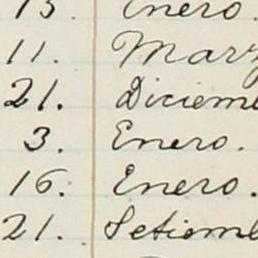 13. Enero.
11. Marz
21. Diciem
3. Enero.
16. Enero.
21. Setiemb